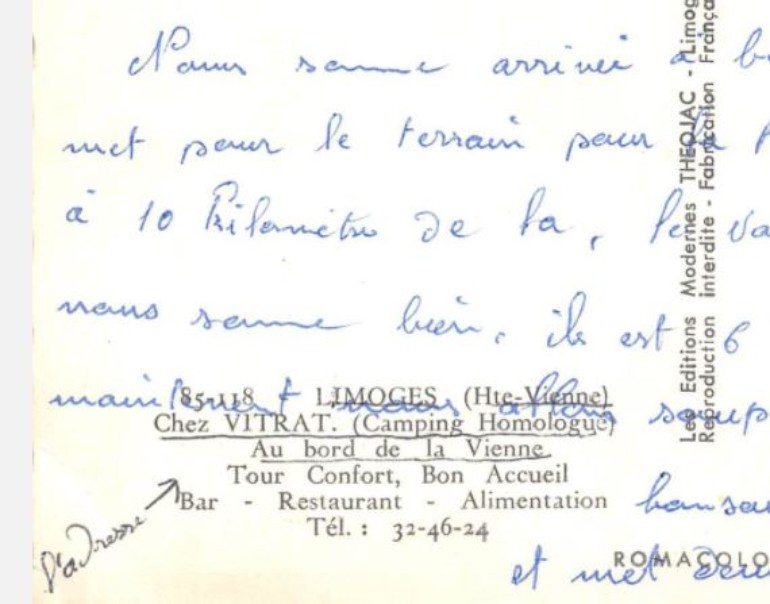 Nous somme arrivée à
met pour le terrain pour la
à 10 Kilomètre de la, le
nous somme bien, ils est 6
maintenant nous allons soup
85-118 LIMOGES (Hte-Vienne)
Chez VITRAT. (Camping Homologué)
Au bord de la Vienne
Tour Confort, Bon Accueil
Bar - Restaurant - Alimentation
Tél. : 32-46-24
l'adresse
et met
ROMACOLO
Les Editions Modernes THEOJAC - Limog
Reproduction interdite - Fabrication França